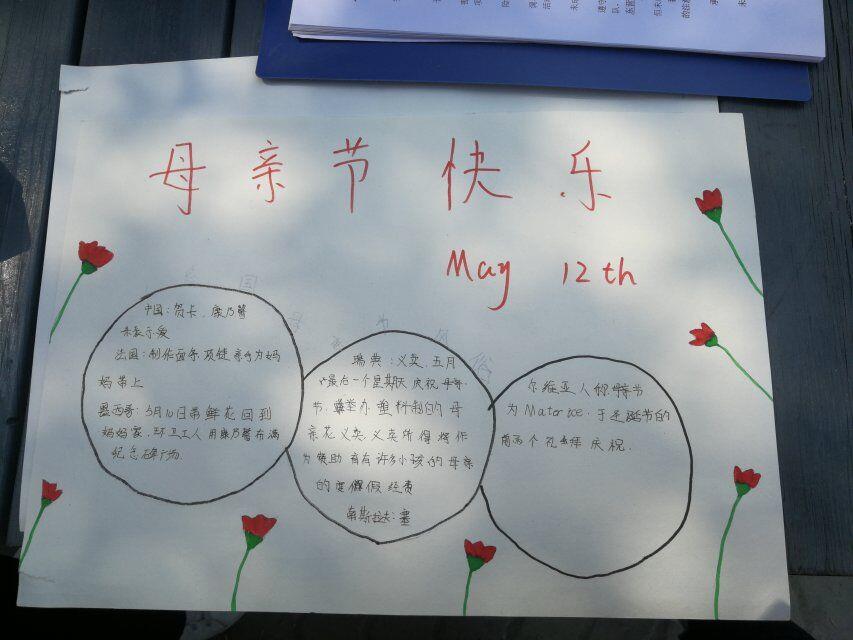 母亲节快乐
May 12th
中国：贺卡、康乃馨
来表示爱
法国：制作面条项链亲手为妈
妈带上
墨西哥：5月10日带鲜花回到
妈妈家，环卫工人用康乃馨布满
纪念碑广场.
瑞典：义卖，五月
最后一个星期天庆祝母亲
节，举办塑料制的母
亲花义卖义卖所得将作
为赞助育有许多小孩的母亲
的度假经费
南斯拉夫：塞
尔维亚人称特节
为Materice，于圣诞节的
前两个礼拜庆祝.
国
为
俗